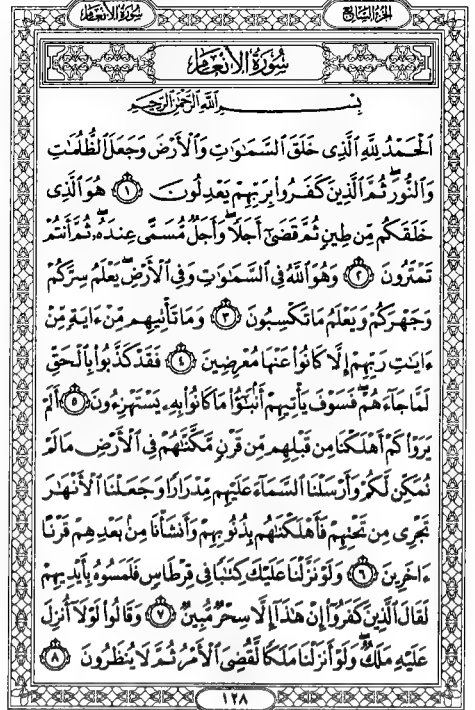 سُورَةُ الأَنْعَام
الجُزْءُ السَّابِعُ
سُورَةُ الأَنْعَام
بِسْمِ ٱللَّهِ ٱلرَّحْمَٰنِ ٱلرَّحِيمِ
ٱلْحَمْدُ لِلَّهِ ٱلَّذِى خَلَقَ ٱلسَّمَٰوَٰتِ وَٱلْأَرْضَ وَجَعَلَ ٱلظُّلُمَٰتِ
وَٱلنُّورَ ۖ ثُمَّ ٱلَّذِينَ كَفَرُوا۟ بِرَبِّهِمْ يَعْدِلُونَ ١ هُوَ ٱلَّذِى
خَلَقَكُم مِّن طِينٍ ثُمَّ قَضَىٰٓ أَجَلًا ۖ وَأَجَلٌ مُّسَمًّى عِندَهُۥ ۖ ثُمَّ أَنتُمْ
تَمْتَرُونَ ٢ وَهُوَ ٱللَّهُ فِى ٱلسَّمَٰوَٰتِ وَفِى ٱلْأَرْضِ ۖ يَعْلَمُ سِرَّكُمْ
وَجَهْرَكُمْ وَيَعْلَمُ مَا تَكْسِبُونَ ٣ وَمَا تَأْتِيهِم مِّنْ ءَايَةٍ مِّنْ
ءَايَٰتِ رَبِّهِمْ إِلَّا كَانُوا۟ عَنْهَا مُعْرِضِينَ ٤ فَقَدْ كَذَّبُوا۟ بِٱلْحَقِّ
لَمَّا جَآءَهُمْ ۖ فَسَوْفَ يَأْتِيهِمْ أَنۢبَٰٓؤُا۟ مَا كَانُوا۟ بِهِۦ يَسْتَهْزِءُونَ ٥ أَلَمْ
يَرَوْا۟ كَمْ أَهْلَكْنَا مِن قَبْلِهِم مِّن قَرْنٍ مَّكَّنَّٰهُمْ فِى ٱلْأَرْضِ مَا لَمْ
نُمَكِّن لَّكُمْ وَأَرْسَلْنَا ٱلسَّمَآءَ عَلَيْهِم مِّدْرَارًا وَجَعَلْنَا ٱلْأَنْهَٰرَ
تَجْرِى مِن تَحْتِهِمْ فَأَهْلَكْنَٰهُم بِذُنُوبِهِمْ وَأَنشَأْنَا مِنۢ بَعْدِهِمْ قَرْنًا
ءَاخَرِينَ ٦ وَلَوْ نَزَّلْنَا عَلَيْكَ كِتَٰبًا فِى قِرْطَاسٍ فَلَمَسُوهُ بِأَيْدِيهِمْ
لَقَالَ ٱلَّذِينَ كَفَرُوٓا۟ إِنْ هَٰذَآ إِلَّا سِحْرٌ مُّبِينٌ ٧ وَقَالُوا۟ لَوْلَآ أُنزِلَ
عَلَيْهِ مَلَكٌ ۖ وَلَوْ أَنزَلْنَا مَلَكًا لَّقُضِىَ ٱلْأَمْرُ ثُمَّ لَا يُنظَرُونَ ٨
١٢٨